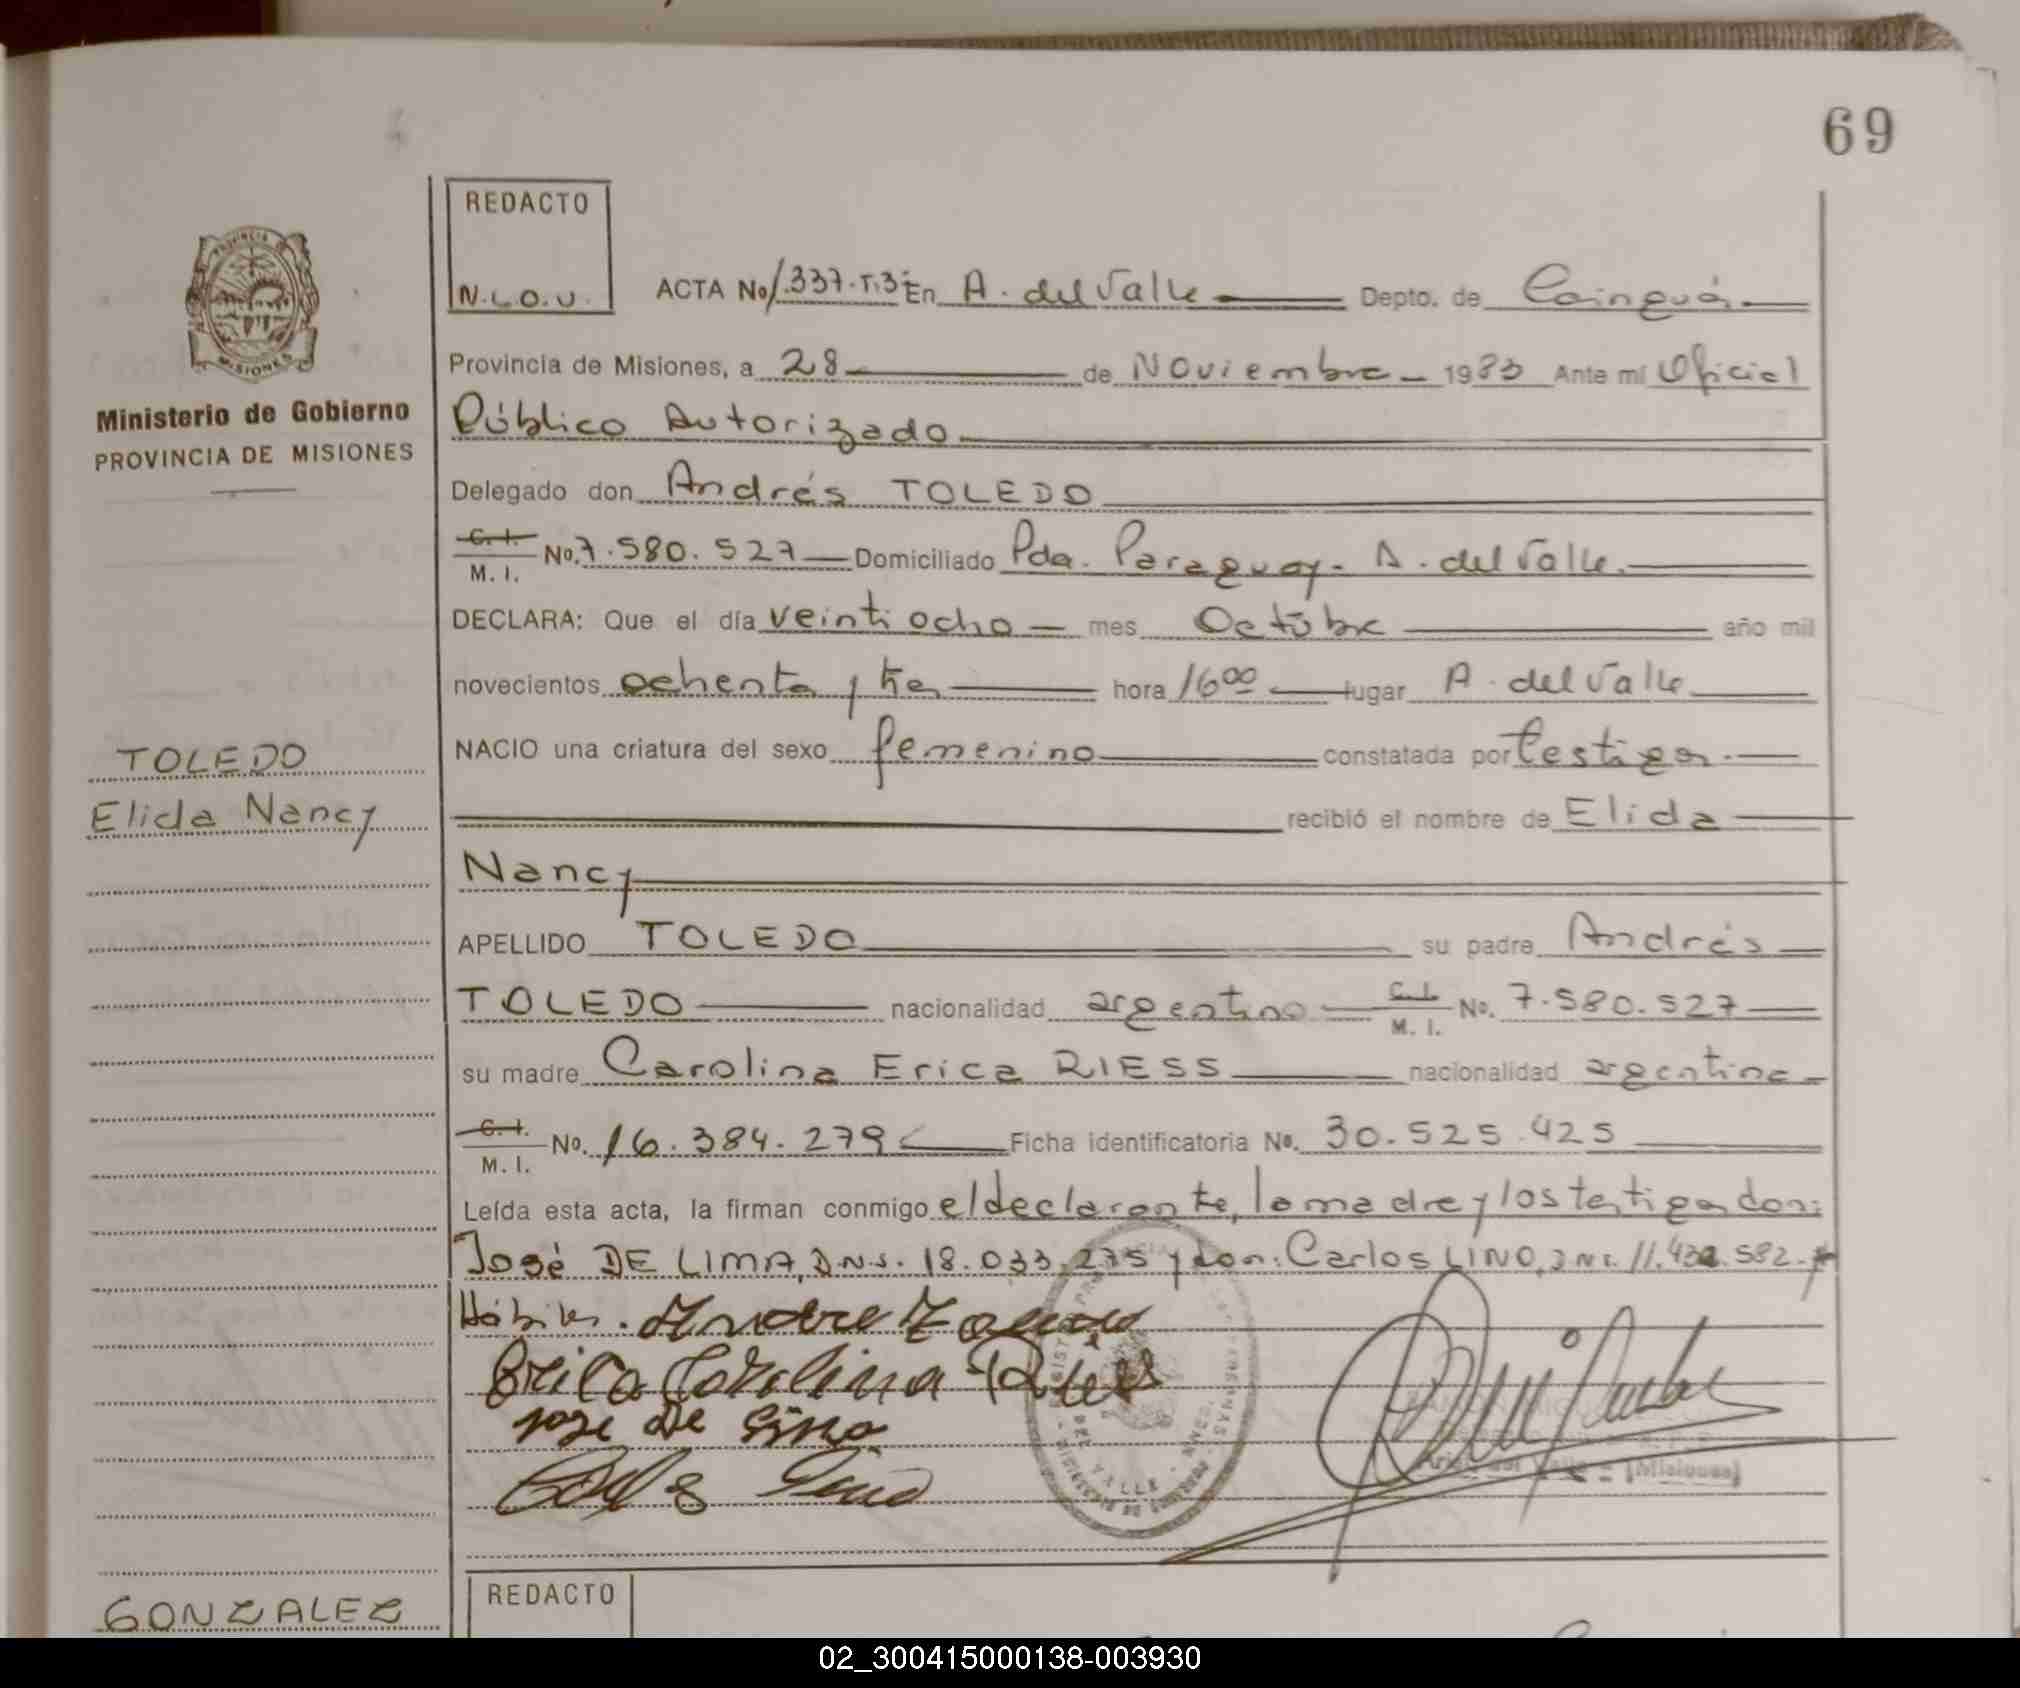 69
REDACTO
N.L.O.V.
ACTA No/.337.T.3º En A. del Valle Depto. de Cainguás
Provincia de Misiones, a 28 de Noviembre 1983 Ante mí Oficial
Público Autorizado
Delegado don Andrés TOLEDO
C. I. M. I. No. 7.580.527 Domiciliado Pda. Paraguay - A. del Valle.
DECLARA: Que el día veintiocho mes Octubre año mil
novecientos ochenta y tres hora 16⁰⁰ lugar A. del Valle
NACIO una criatura del sexo femenino constatada por testigos.
recibió el nombre de Elida
Nancy
APELLIDO TOLEDO su padre Andrés
TOLEDO nacionalidad argentino C. I. M. I. No. 7.580.527
su madre Carolina Erica RIESS nacionalidad argentina
C. I. M. I. No. 16.384.279 Ficha identificatoria No. 30.525.425
Leída esta acta, la firman conmigo el declarante, la madre y los testigos don:
José DE LIMA, D.N.I. 18.033.275 y don: Carlos LINO, D.N.I. 11.432.582.-
Hábiles.
Erica Carolina Riess
Jose De Lima
Ministerio de Gobierno
PROVINCIA DE MISIONES
TOLEDO
Elida Nancy
GONZALEZ
REDACTO
02_300415000138-003930